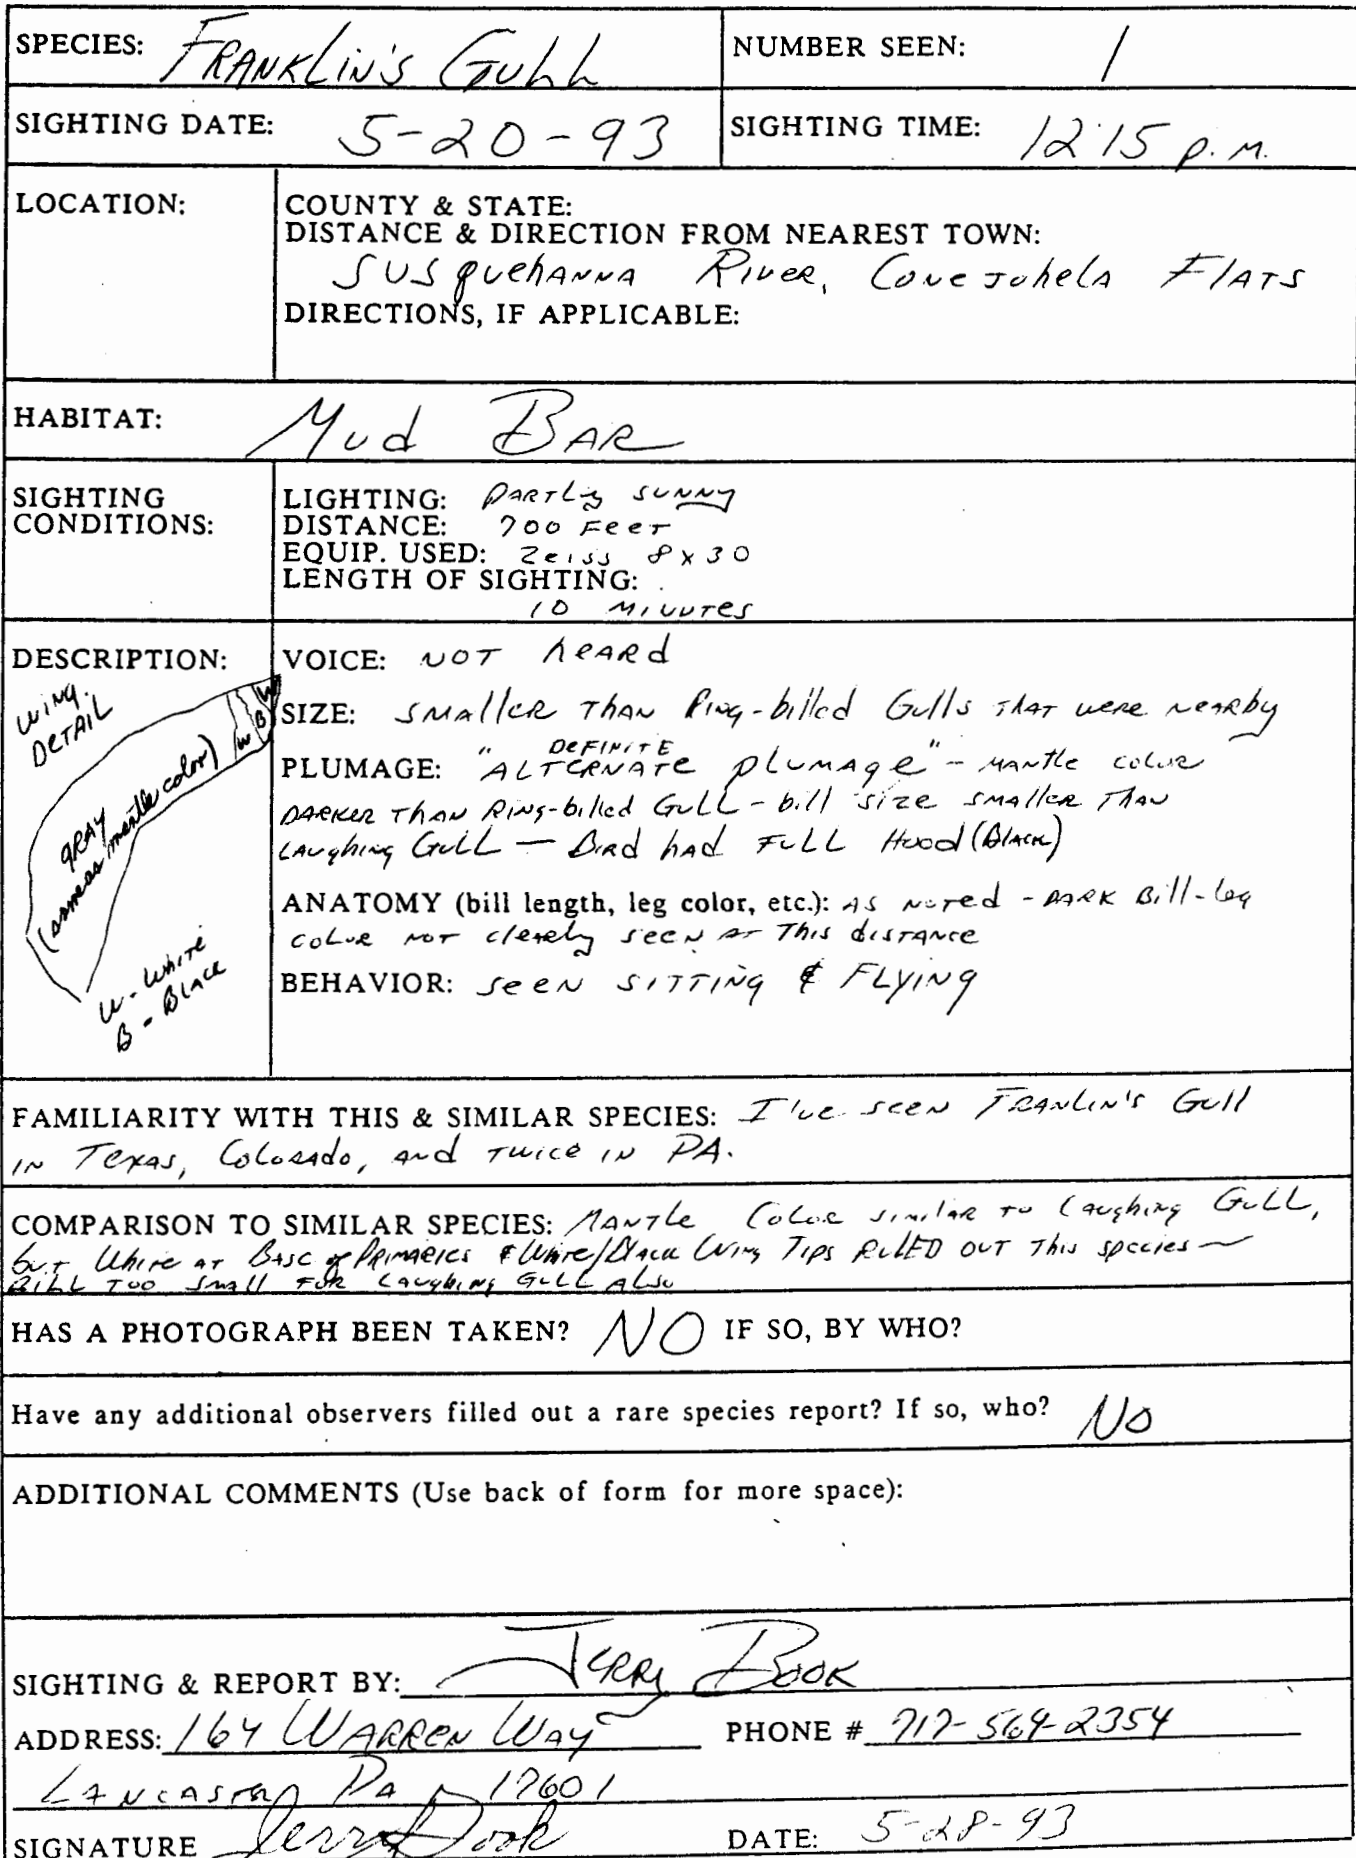 SPECIES: FRANKLIN'S GULL
NUMBER SEEN: 1
SIGHTING DATE: 5-20-93
SIGHTING TIME: 12:15 P.M.
LOCATION:
COUNTY & STATE:
DISTANCE & DIRECTION FROM NEAREST TOWN:
SUSQUEHANNA RIVER, CONEJOHELA FLATS
DIRECTIONS, IF APPLICABLE:
HABITAT: MUD BAR
SIGHTING
CONDITIONS:
LIGHTING: PARTLY SUNNY
DISTANCE: 700 FEET
EQUIP. USED: Zeiss 8x30
LENGTH OF SIGHTING:
10 MINUTES
DESCRIPTION:
WING
DETAIL
W
B
W
GRAY
(same as mantle color)
W - WHITE
B - BLACK
VOICE: NOT HEARD
SIZE: SMALLER THAN Ring-billed Gulls THAT WERE NEARBY
DEFINITE
PLUMAGE: "ALTERNATE PLUMAGE" - MANTLE COLOR
DARKER THAN RING-billed GULL - bill SIZE SMALLER THAN
LAUGHING GULL — BIRD HAD FULL HOOD (BLACK)
ANATOMY (bill length, leg color, etc.): AS NOTED - DARK Bill - leg
COLOR NOT CLEARLY SEEN AT THIS DISTANCE
BEHAVIOR: SEEN SITTING & FLYING
FAMILIARITY WITH THIS & SIMILAR SPECIES: I'VE SEEN FRANLIN'S GULL
IN TEXAS, COLORADO, AND TWICE IN PA.
COMPARISON TO SIMILAR SPECIES: MANTLE COLOR SIMILAR TO LAUGHING GULL,
BUT WHITE AT BASE OF PRIMARIES & WHITE/BLACK WING TIPS RULED OUT THIS SPECIES —
BILL TOO SMALL FOR LAUGHING GULL ALSO
HAS A PHOTOGRAPH BEEN TAKEN? NO IF SO, BY WHO?
Have any additional observers filled out a rare species report? If so, who? NO
ADDITIONAL COMMENTS (Use back of form for more space):
SIGHTING & REPORT BY: JERRY BOOK
ADDRESS: 164 WARREN WAY
PHONE # 717-569-2354
LANCASTER PA 17601
SIGNATURE Jerry Book
DATE: 5-28-93